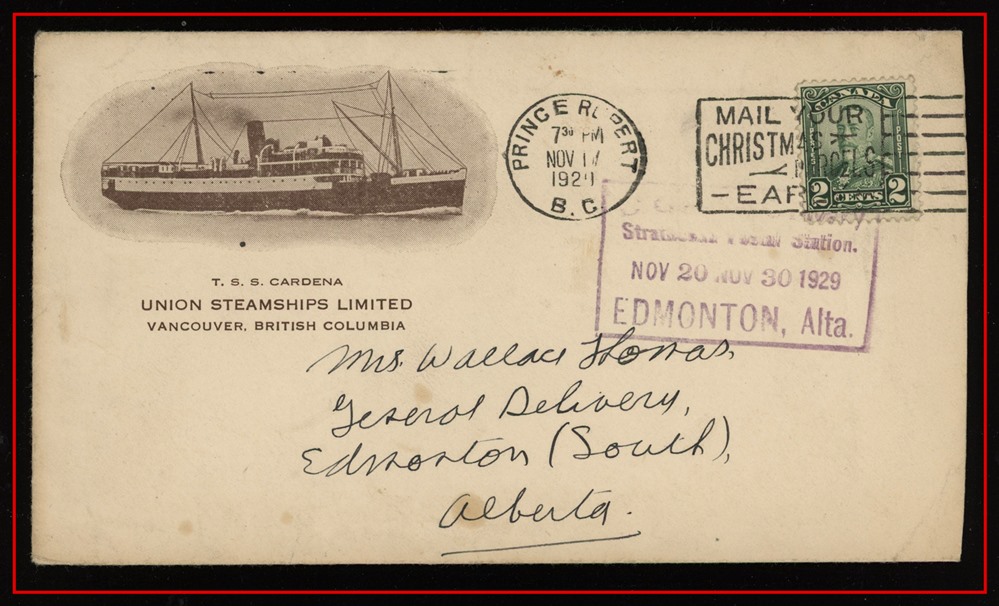 T. S. S. CARDENA
UNION STEAMSHIPS LIMITED
VANCOUVER, BRITISH COLUMBIA
PRINCE RUPERT
7 30 PM
NOV 17
1929
B.C.
MAIL YOUR
CHRISTMAS
PARCELS
-EARLY
CANADA
POSTES
2 CENTS 2
Strathcona Postal Station.
NOV 20 NOV 30 1929
EDMONTON, Alta.
Mrs. Wallace Thomas,
General Delivery,
Edmonton (South),
Alberta.